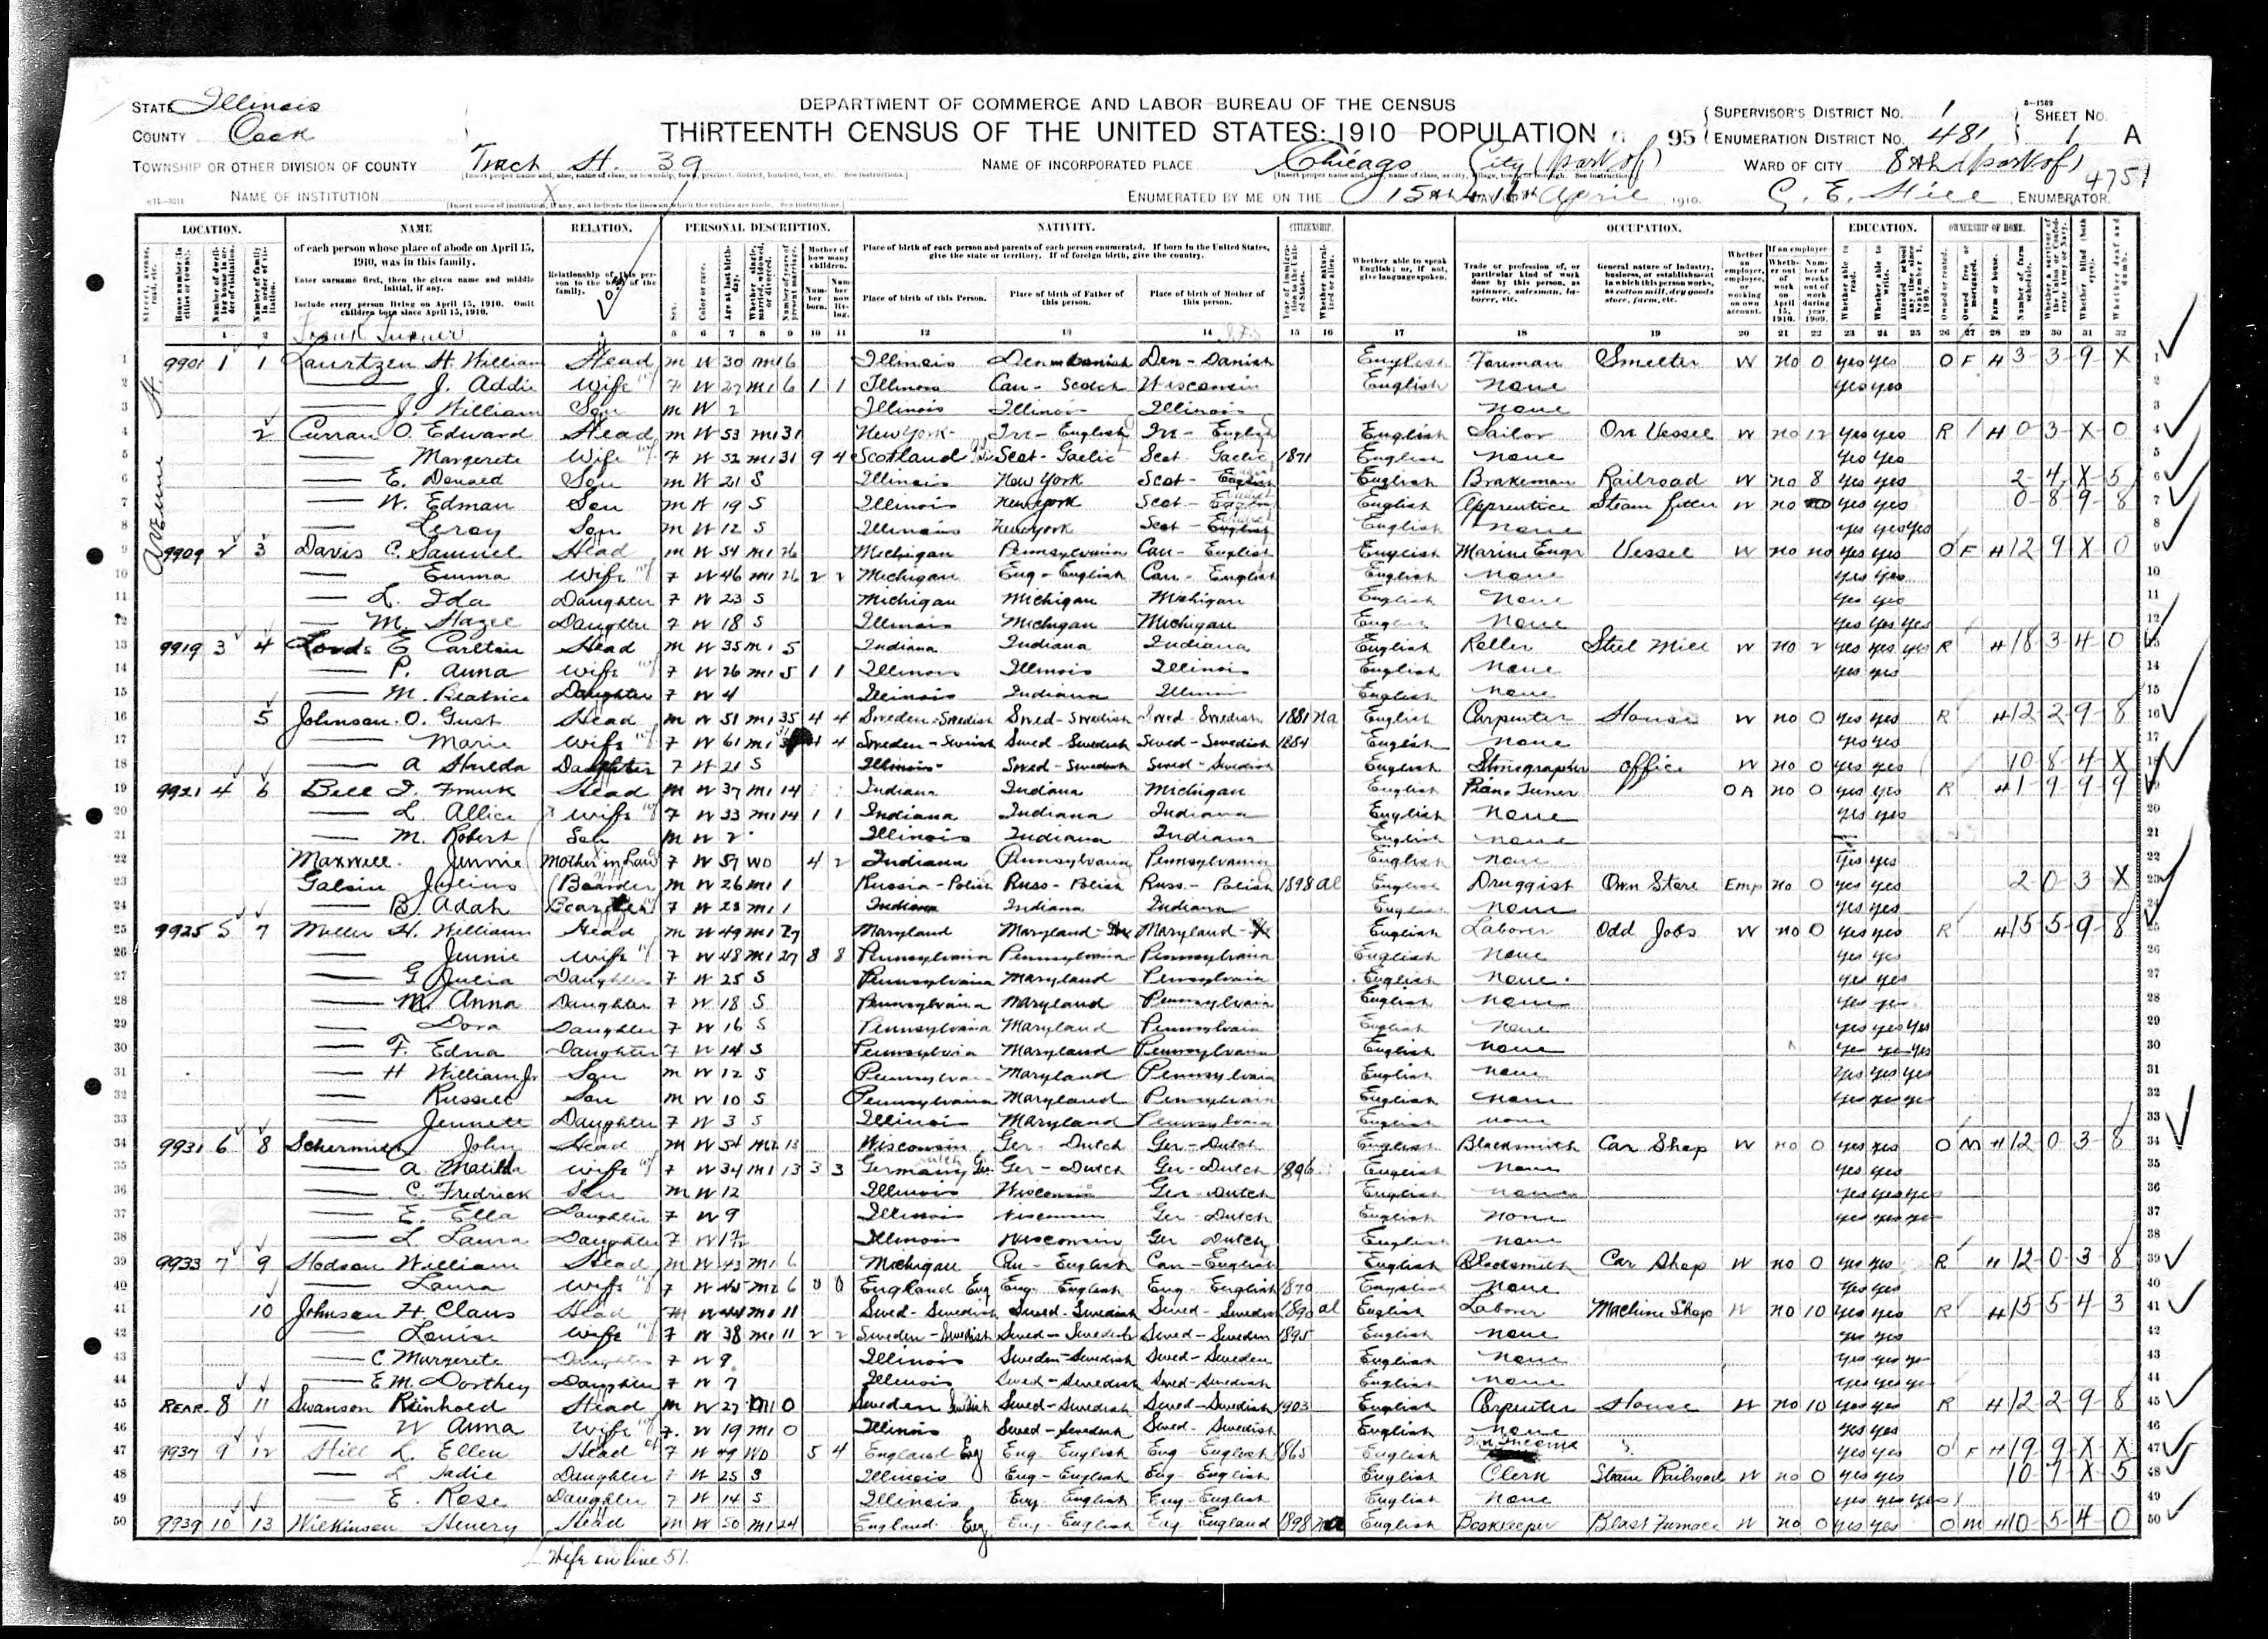 STATE Illinois
COUNTY Cook
TOWNSHIP OR OTHER DIVISION OF COUNTY Trach St. 39
NAME OF INSTITUTION X
DEPARTMENT OF COMMERCE AND LABOR-BUREAU OF THE CENSUS
THIRTEENTH CENSUS OF THE UNITED STATES: 1910 POPULATION
NAME OF INCORPORATED PLACE Chicago City (part of)
ENUMERATED BY ME ON THE 15th & 16th DAY OF April 1910.
95
SUPERVISOR'S DISTRICT NO. 1
ENUMERATION DISTRICT NO. 481
SHEET NO. 1 A
WARD OF CITY 8th (part of)
4751
ENUMERATOR.
LOCATION. NAME RELATION. PERSONAL DESCRIPTION. NATIVITY. CITIZENSHIP. OCCUPATION. EDUCATION. OWNERSHIP OF HOME.
of each person whose place of abode on April 15, 1910, was in this family.
Enter surname first, then the given name and middle initial, if any.
Include every person living on April 15, 1910. Omit children born since April 15, 1910.
Relationship of this person to the head of the family.
Place of birth of each person and parents of each person enumerated. If born in the United States, give the state or territory. If of foreign birth, give the country.
Place of birth of this Person. Place of birth of Father of this person. Place of birth of Mother of this person.
Whether able to speak English; or, if not, give language spoken.
Trade or profession of, or particular kind of work done by this person, as spinner, salesman, laborer, etc.
General nature of industry, business, or establishment in which this person works, as cotton mill, dry goods store, farm, etc.
Avenue H.
1 9901 1 1 Laurtzen H. William Head m W 30 m1 6 Illinois Den - Danish Den - Danish English Foreman Smelter W no 0 yes yes O F H 3-3-9-X
2 J. Addie Wife F W 27 m1 6 1 1 Illinois Can - Scotch Wisconsin English None yes yes
3 J. William Son m W 2 Illinois Illinois Illinois None
4 2 Curran O. Edward Head m W 53 m1 31 New York Ire - English Ire - English English Sailor On Vessel W no 12 yes yes R H 0-3-X-0
5 Margerete Wife F W 52 m1 31 9 4 Scotland Scot - Gaelic Scot - Gaelic 1871 English None yes yes
6 E. Donald Son m W 21 S Illinois New York Scot - English Brakeman Railroad W no 8 yes yes 2-4-X-5
7 W. Edman Son m W 19 S Illinois New York Scot - English Apprentice Steam fitter W no yes yes 0-8-9-8
8 Leroy Son m W 12 S Illinois New York Scot - English None yes yes yes
9 9909 2 3 Davis C. Samuel Head m W 54 m1 26 Michigan Pennsylvania Can - English English Marine Engr Vessel W no no yes yes O F H 12-9-X-0
10 Emma Wife F W 46 m1 26 2 2 Michigan Eng - English Can - English English None yes yes
11 L. Ida Daughter F W 23 S Michigan Michigan Michigan English None yes yes
12 M. Hazel Daughter F W 18 S Illinois Michigan Michigan English None yes yes yes
13 9919 3 4 Lords E Carlton Head m W 35 m1 5 Indiana Indiana Indiana English Roller Steel Mill W no 2 yes yes yes R H 18-3-4-0
14 P. Anna Wife F W 26 m1 5 1 1 Illinois Illinois Illinois English None yes yes
15 M. Beatrice Daughter F W 4 Illinois Indiana Illinois English None
16 5 Johnson O. Gust Head m W 51 m1 35 4 4 Sweden-Swedish Swed-Swedish Swed-Swedish 1881 na English Carpenter House W no 0 yes yes R H 12-2-9-8
17 Marie Wife F W 61 m1 4 4 Sweden-Swedish Swed-Swedish Swed-Swedish 1884 English None yes yes
18 A Hulda Daughter F W 21 S Illinois Swed-Swedish Swed-Swedish English Stenographer Office W no 0 yes yes 10-8-4-X
19 9921 4 6 Bell I. Frank Head m W 37 m1 14 Indiana Indiana Michigan English Piano Tuner OA no 0 yes yes R H 1-9-9-9
20 L. Allice Wife F W 33 m1 14 1 1 Indiana Indiana Indiana English None yes yes
21 M. Robert Son m W 2 Illinois Indiana Indiana English None
22 Maxwell Jennie Mother in Law F W 57 Wd 4 2 Indiana Pennsylvania Pennsylvania English None yes yes
23 Galsin Julius Boarder m W 26 m1 1 Russia-Polish Russ.-Polish Russ.-Polish 1898 al English Druggist Own Store Emp no 0 yes yes 2-0-3-X
24 B. Adah Boarder F W 23 m1 1 Indiana Indiana Indiana English None yes yes
25 9925 5 7 Miller H. William Head m W 49 m1 27 Maryland Maryland Maryland English Laborer Odd Jobs W no 0 yes yes R H 15-5-9-8
26 Jennie Wife F W 48 m1 27 8 8 Pennsylvania Pennsylvania Pennsylvania English None yes yes
27 G Julia Daughter F W 25 S Pennsylvania Maryland Pennsylvania English None yes yes
28 M. Anna Daughter F W 18 S Pennsylvania Maryland Pennsylvania English None yes yes
29 Dora Daughter F W 16 S Pennsylvania Maryland Pennsylvania English None yes yes yes
30 F. Edna Daughter F W 14 S Pennsylvania Maryland Pennsylvania English None yes yes yes
31 H William Jr Son m W 12 S Pennsylvania Maryland Pennsylvania English None yes yes yes
32 Russell Son m W 10 S Pennsylvania Maryland Pennsylvania English None yes yes yes
33 Jennett Daughter F W 3 S Illinois Maryland Pennsylvania English None
34 9931 6 8 John Head m W 54 m2 13 Wisconsin Ger - Dutch Ger - Dutch English Blacksmith Car Shop W no 0 yes yes O M H 12-0-3-8
35 A. Matilda Wife F W 34 m1 13 3 3 Germany Ger - Dutch Ger - Dutch 1896 English None yes yes
36 C. Fredrick Son m W 12 Illinois Wisconsin Ger - Dutch English None yes yes yes
37 E. Ella Daughter F W 9 Illinois Wisconsin Ger - Dutch English None yes yes yes
38 L. Laura Daughter F W Illinois Wisconsin Ger Dutch English None
39 9933 7 9 Hodson William Head m W 43 m1 6 Michigan Can - English Can - English English Blacksmith Car Shop W no 0 yes yes R H 12-0-3-8
40 Laura Wife F W 45 m2 6 0 0 England Eng Eng - English Eng - English 1870 English None yes yes
41 10 Johnson H. Claus Head m W 44 m1 11 Swed-Swedish Swed-Swedish Swed-Swedish 1890 al English Laborer Machine Shop W no 10 yes yes R H 15-5-4-3
42 Louise Wife F W 38 m1 11 2 2 Sweden-Swedish Swed-Swedish Swed-Sweden 1895 English None yes yes
43 C. Margerete Daughter F W 9 Illinois Sweden-Swedish Swed-Sweden English None yes yes yes
44 E. M. Dorthey Daughter F W 7 Illinois Swed-Swedish Swed-Swedish English None yes yes yes
45 REAR 8 11 Swanson Reinhold Head m W 27 m1 0 Sweden Swedish Swed-Swedish Swed-Swedish 1903 English Carpenter House W no 10 yes yes R H 12-2-9-8
46 W Anna Wife F W 19 m1 0 Illinois Swed-Swedish Swed-Swedish English None yes yes
47 9937 9 12 Hill L. Ellen Head F W 49 Wd 5 4 England Eng Eng - English Eng - English 1865 English Own Income yes yes O F H 9-9-X-X
48 L Sadie Daughter F W 25 S Illinois Eng - English Eng - English English Clerk Steam Railroad W no 0 yes yes 10-7-X-5
49 E. Rose Daughter F W 14 S Illinois Eng - English Eng - English English None yes yes yes
50 9939 10 13 Wilkinson Henery Head m W 50 m1 24 England Eng Eng - English Eng England 1898 na English Bookkeeper Blast Furnace W no 0 yes yes O M H 10-5-4-0
Wife on line 51.